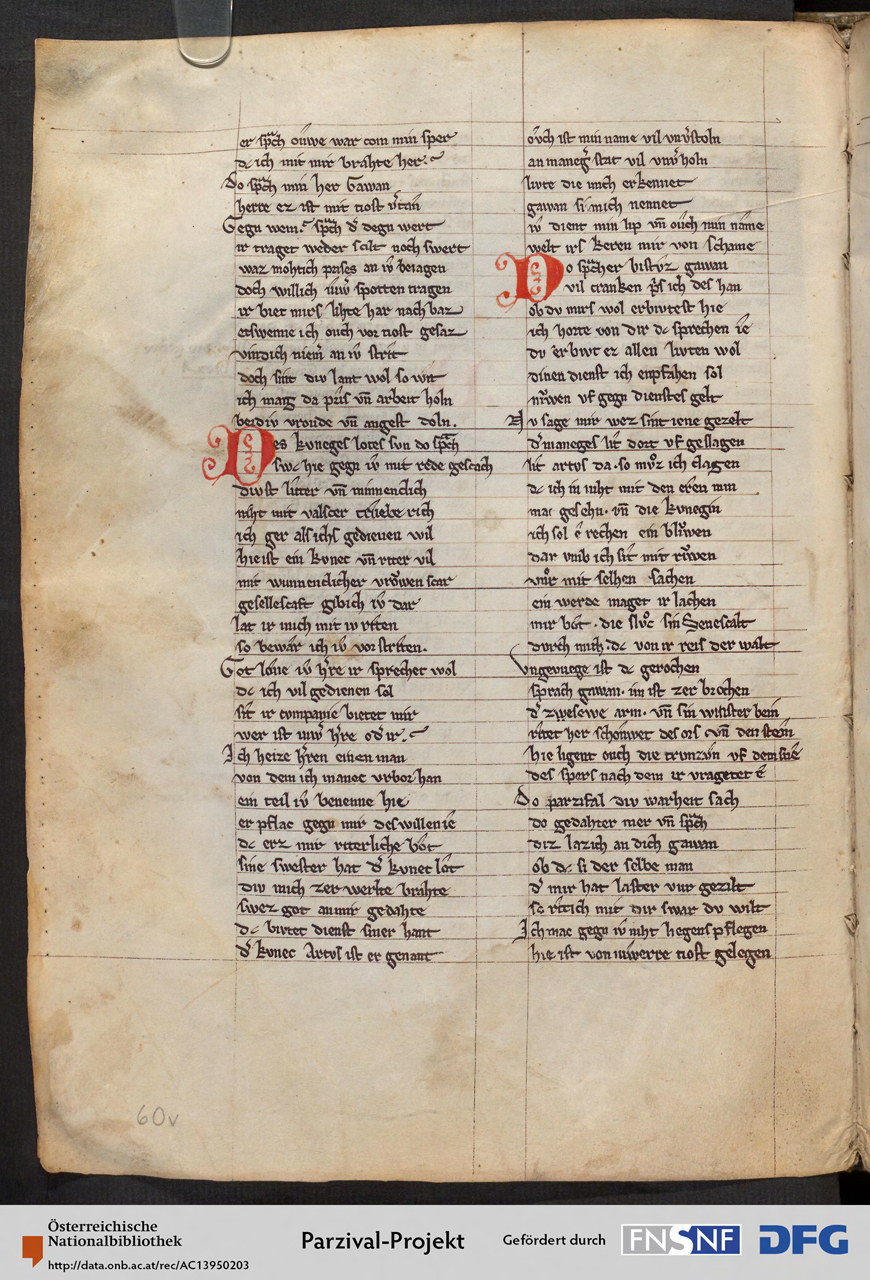 er sp͛ch oͮwe war com min sper
dc ich mit mir brahte her.
Do sp͛ch min her Gawan
herre ez ist mit tiost v͛tan
Gegn wem. sp͛ch d͛ degn wert
ir traget weder scilt noch swert
waz mohtich prises an iv beiagen
doch willich iwͮ spotten tragen
ir biet mirs lihte har nach baz
etswenne ich ouch vor tiost gesaz
vindich niem͛ an iv strit
doch sint div lant wol so wit
ich mag da pris vn̄ arbeit holn
beidiv vroude vn̄ angest doln.
Des kvneges lotes svn do sp͛ch
swc hie gegn iv mit rede gescach
divst liter vn̄ minnenclich
niht mit valscer truebe rich
ich ger als ichs gedienen wil
hie ist ein kvnec vn̄ riter vil
mit wunnenclicher vrowen scar
gesellescaft gibich iv dar
lat ir mich mit iv riten
so bewar ich iv vor striten.
Got lone iv h͛re ir sprechet wol
dc ich vil gedienen sol
sit ir companie bietet mir
wer ist iwͮ h͛re od͛ ir.
Ich heize h͛ren einen man
von dem ich manec vrbor han
ein teil iv benenne hie
er pflac gegn mir des willen ie
dc erz mir riterliche bot
sine swester hat d͛ kvnec lot
div mich zer werlte brahte
swez got an mir gedahte
dc bivtet dienst siner hant
d͛ kvnec Artvs ist er genant
ovch ist min name vil vnv͛stoln
an maneg͛ stat vil vnv͛holn
livte die mich erkennet
gawan si mich nennet
iv dient min lip vn̄ oͮch min name
welt irs keren mir von schame
Do sp͛cher bistvz gawan
vil cranken p͛s ich des han
ob dv mirs wol erbivtest hie
ich horte von dir dc sprechen ie
dv erbivt ez allen livten wol
dinen dienst ich enpfahen sol
niwen vf gegn dienstes gelt
Nv sage mir wez sint iene gezelt
d͛ maneges lit dort vf geslagen
lit artvs da. so mvͦz ich clagen
dc ich in niht mit den eren min
mac gesehn. vn̄ die kvnegin
ich sol e rechen ein bliwen
dar vmb ich sit mit riwen
vuͦr mit selhen sachen
ein werde maget ir lachen
mir bot. die slvͦc sin Senescalt
durch mich. dc von ir reis der walt
Vngevuege ist dc gerochen
sprach gawan. im ist zer brochen
d͛ zwesewe arm. vn̄ sin winster bein
ritet her schowet des ors vn̄ den stein
hie ligent ouch die trvnzvn vf dem sne
des spers nach dem ir vragetet e
Do parzifal div warheit sach
do gedahter mer vn̄ sp͛ch
diz lazich an dich gawan
ob dc si der selbe man
d͛ mir hat laster vur gezilt
so ritich mit dir swar dv wilt
Ich mac gegn iv niht liegens pflegen
hie ist von iuwerre tiost gelegen
60v
Österreichische
Nationalbibliothek
http://data.onb.ac.at/rec/AC13950203
Parzival-Projekt
Gefördert durch
FNSNF
DFG